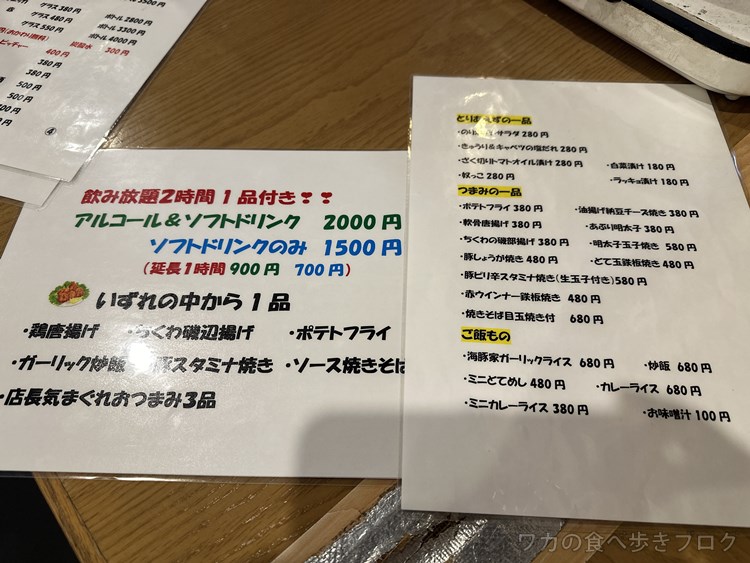 グラス 380円
グラス 480円
グラス 550円
ボトル 2800円
ボトル 3300円
ボトル 4000円
炭酸水 300円
400円
380円
380円
500円
500円
④
飲み放題2時間1品付き❣❣
アルコール&ソフトドリンク 2000円
ソフトドリンクのみ 1500円
(延長1時間 900円 700円)
いずれの中から1品
・鶏唐揚げ ・ちくわ磯辺揚げ ・ポテトフライ
・ガーリック炒飯 ・豚スタミナ焼き ・ソース焼きそば
・店長気まぐれおつまみ3品
とりあえずの一品
サラダ 280円
・きゅうり&キャベツの塩だれ 280円
・ざく切りトマトオイル漬け 280円 ・白菜漬け 180円
・奴っこ 280円 ・ラッキョ漬け 180円
つまみの一品
・ポテトフライ 380円 ・油揚げ納豆チーズ焼き 380円
・軟骨唐揚げ 380円 ・あぶり明太子 380円
・ちくわの磯部揚げ 380円 ・明太子玉子焼き 580円
・豚しょうが焼き 480円 ・どて玉鉄板焼き 480円
・豚ピリ辛スタミナ焼き(生玉子付き)580円
・赤ウインナー鉄板焼き 480円
・焼きそば目玉焼き付 680円
ご飯もの
・海豚家ガーリックライス 680円 ・炒飯 680円
・ミニどてめし 480円 ・カレーライス 680円
・ミニカレーライス 380円 ・お味噌汁 100円
ワカの食べ歩きブログ